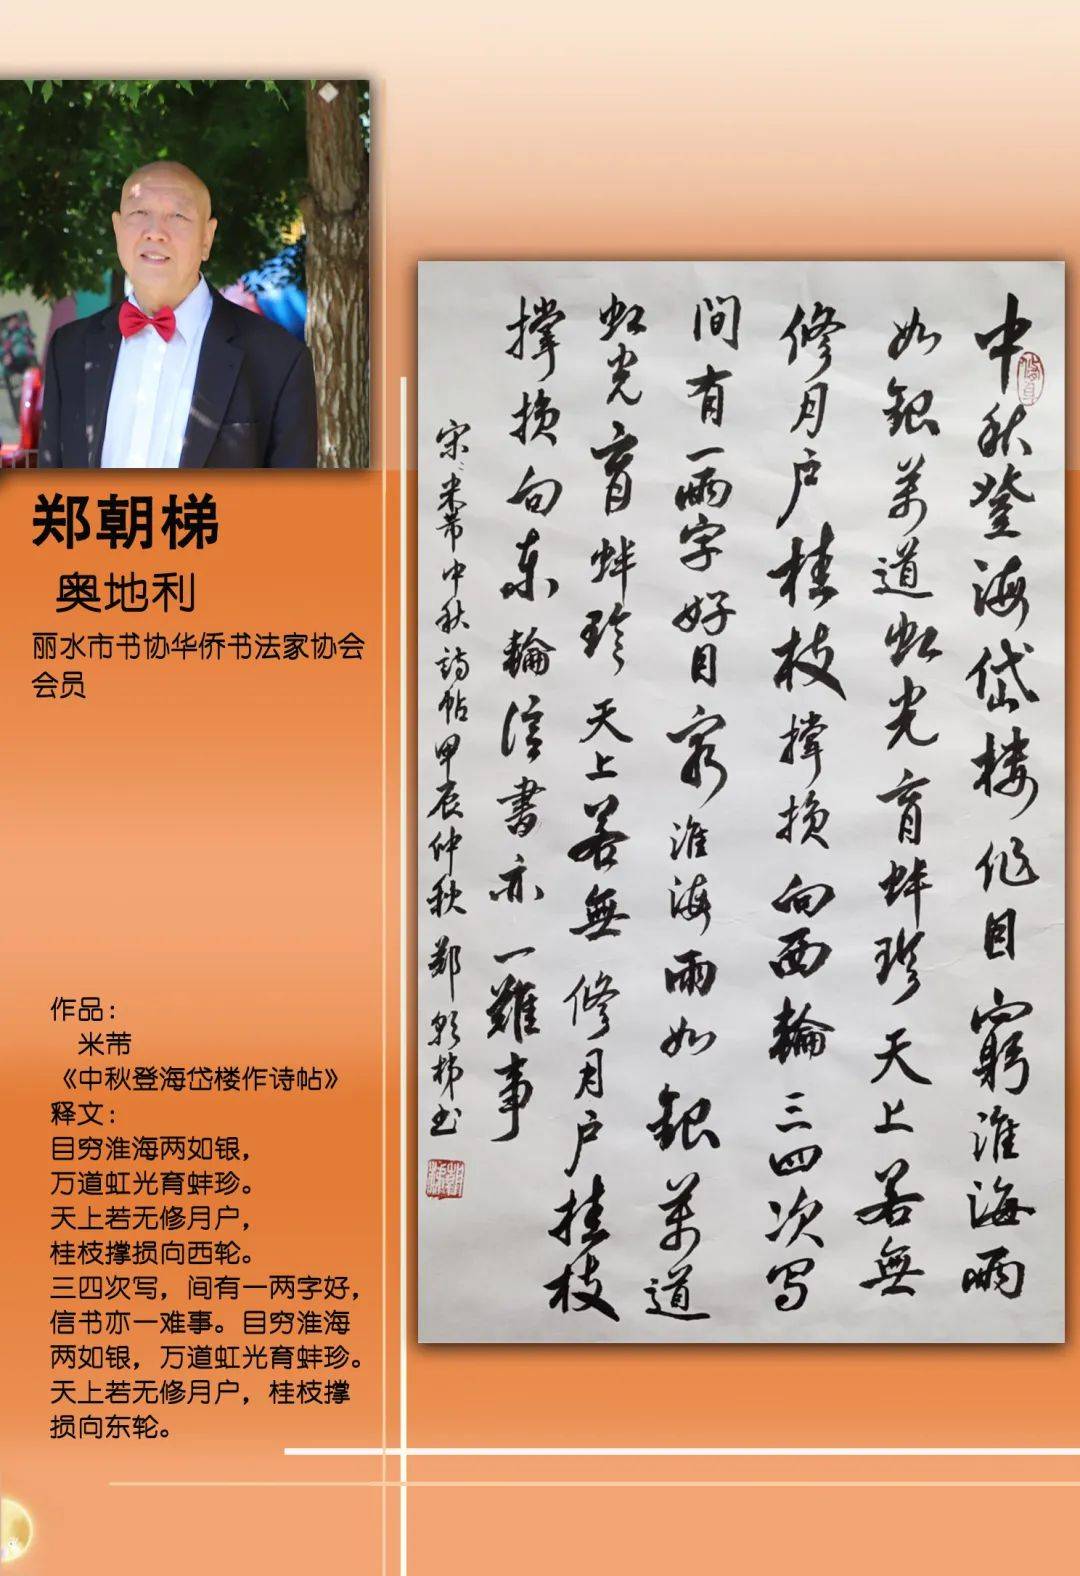 郑朝梯
奥地利
丽水市书协华侨书法家协会
会员
作品：
米芾
《中秋登海岱楼作诗帖》
释文：
目穷淮海两如银，
万道虹光育蚌珍。
天上若无修月户，
桂枝撑损向西轮。
三四次写，间有一两字好，
信书亦一难事。目穷淮海
两如银，万道虹光育蚌珍。
天上若无修月户，桂枝撑
损向东轮。
中秋登海岱楼作目窮淮海兩
如銀萬道虹光育蚌珍天上若無
修月户桂枝撐損向西輪三四次写
間有一兩字好目窮淮海兩如銀萬道
虹光育蚌珍天上若無修月户桂枝
撐損向东輪信書亦一難事
宋米芾中秋詩帖甲辰仲秋鄭朝梯书